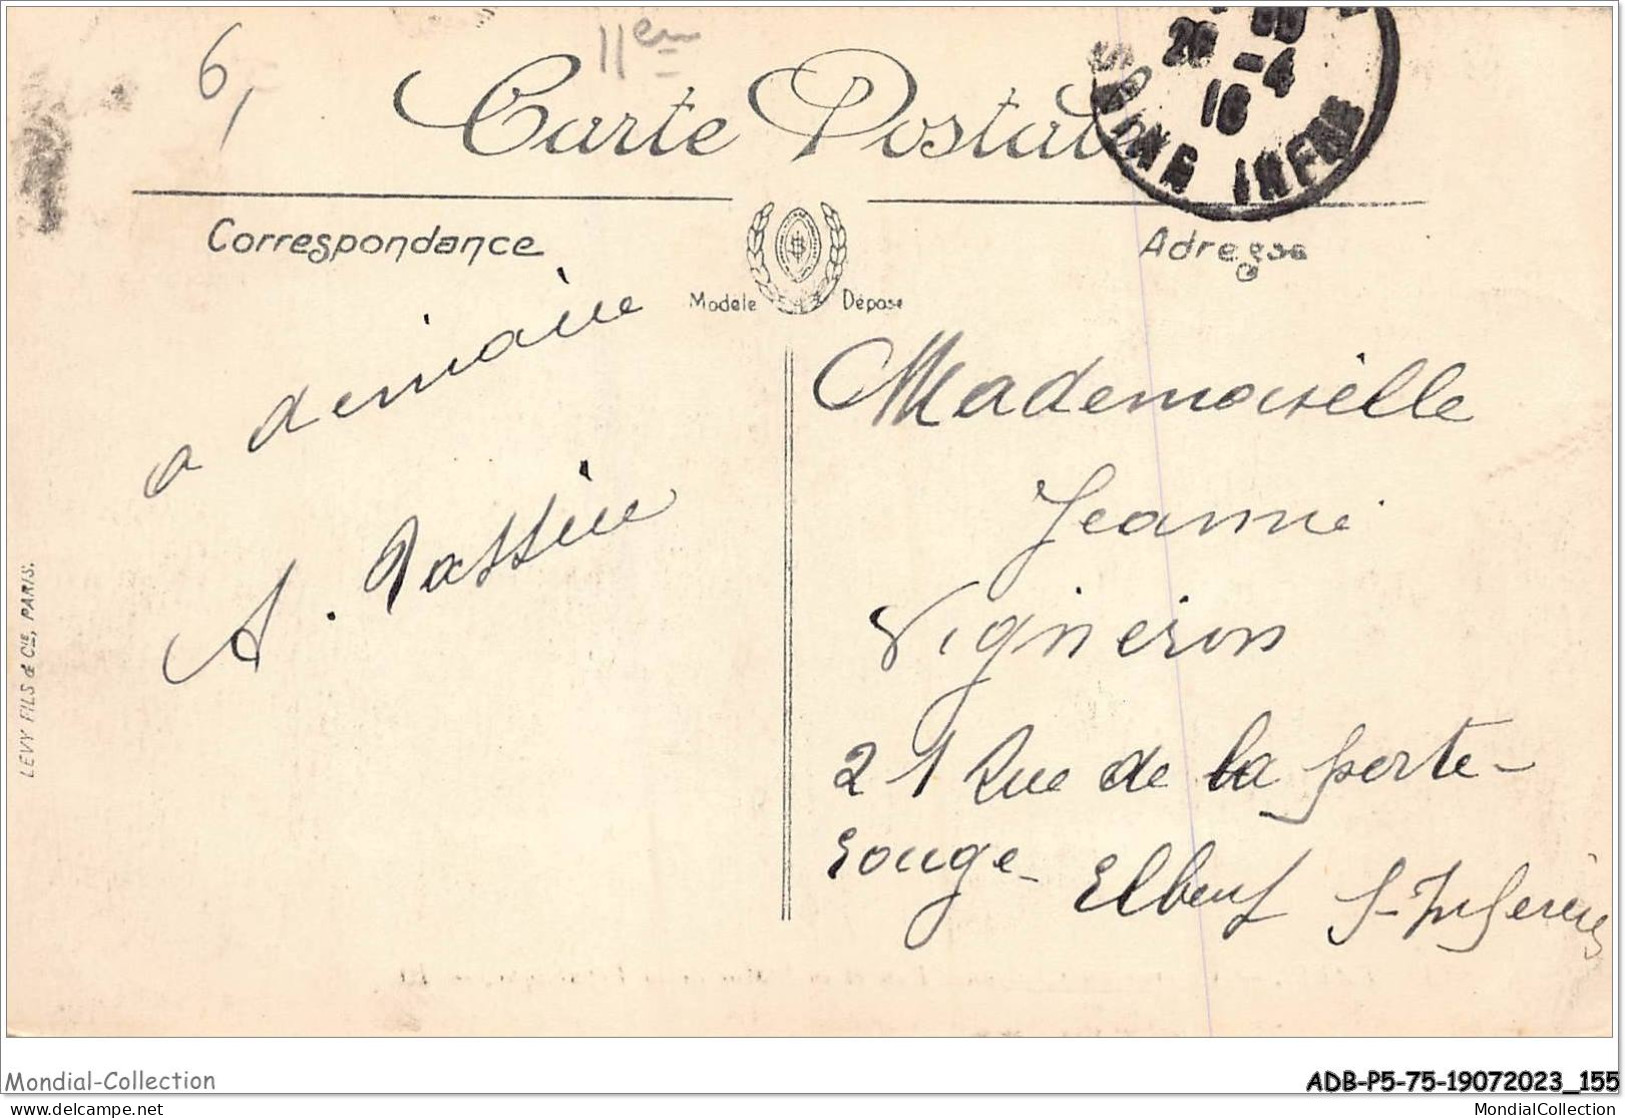 6,
11em
Carte Postale
26 -4
16
SEINE INFRE
Correspondance
Adresse
Modèle Déposé
a demiaire
A. Tassine
Mademoiselle
Jeanne
Vigneron
21 Rue de la porte-
rouge- Elbeuf S-Inferieu
LEVY FILS & CIE, PARIS.
Mondial-Collection
ADB-P5-75-19072023_155
delcampe.net
MondialCollection